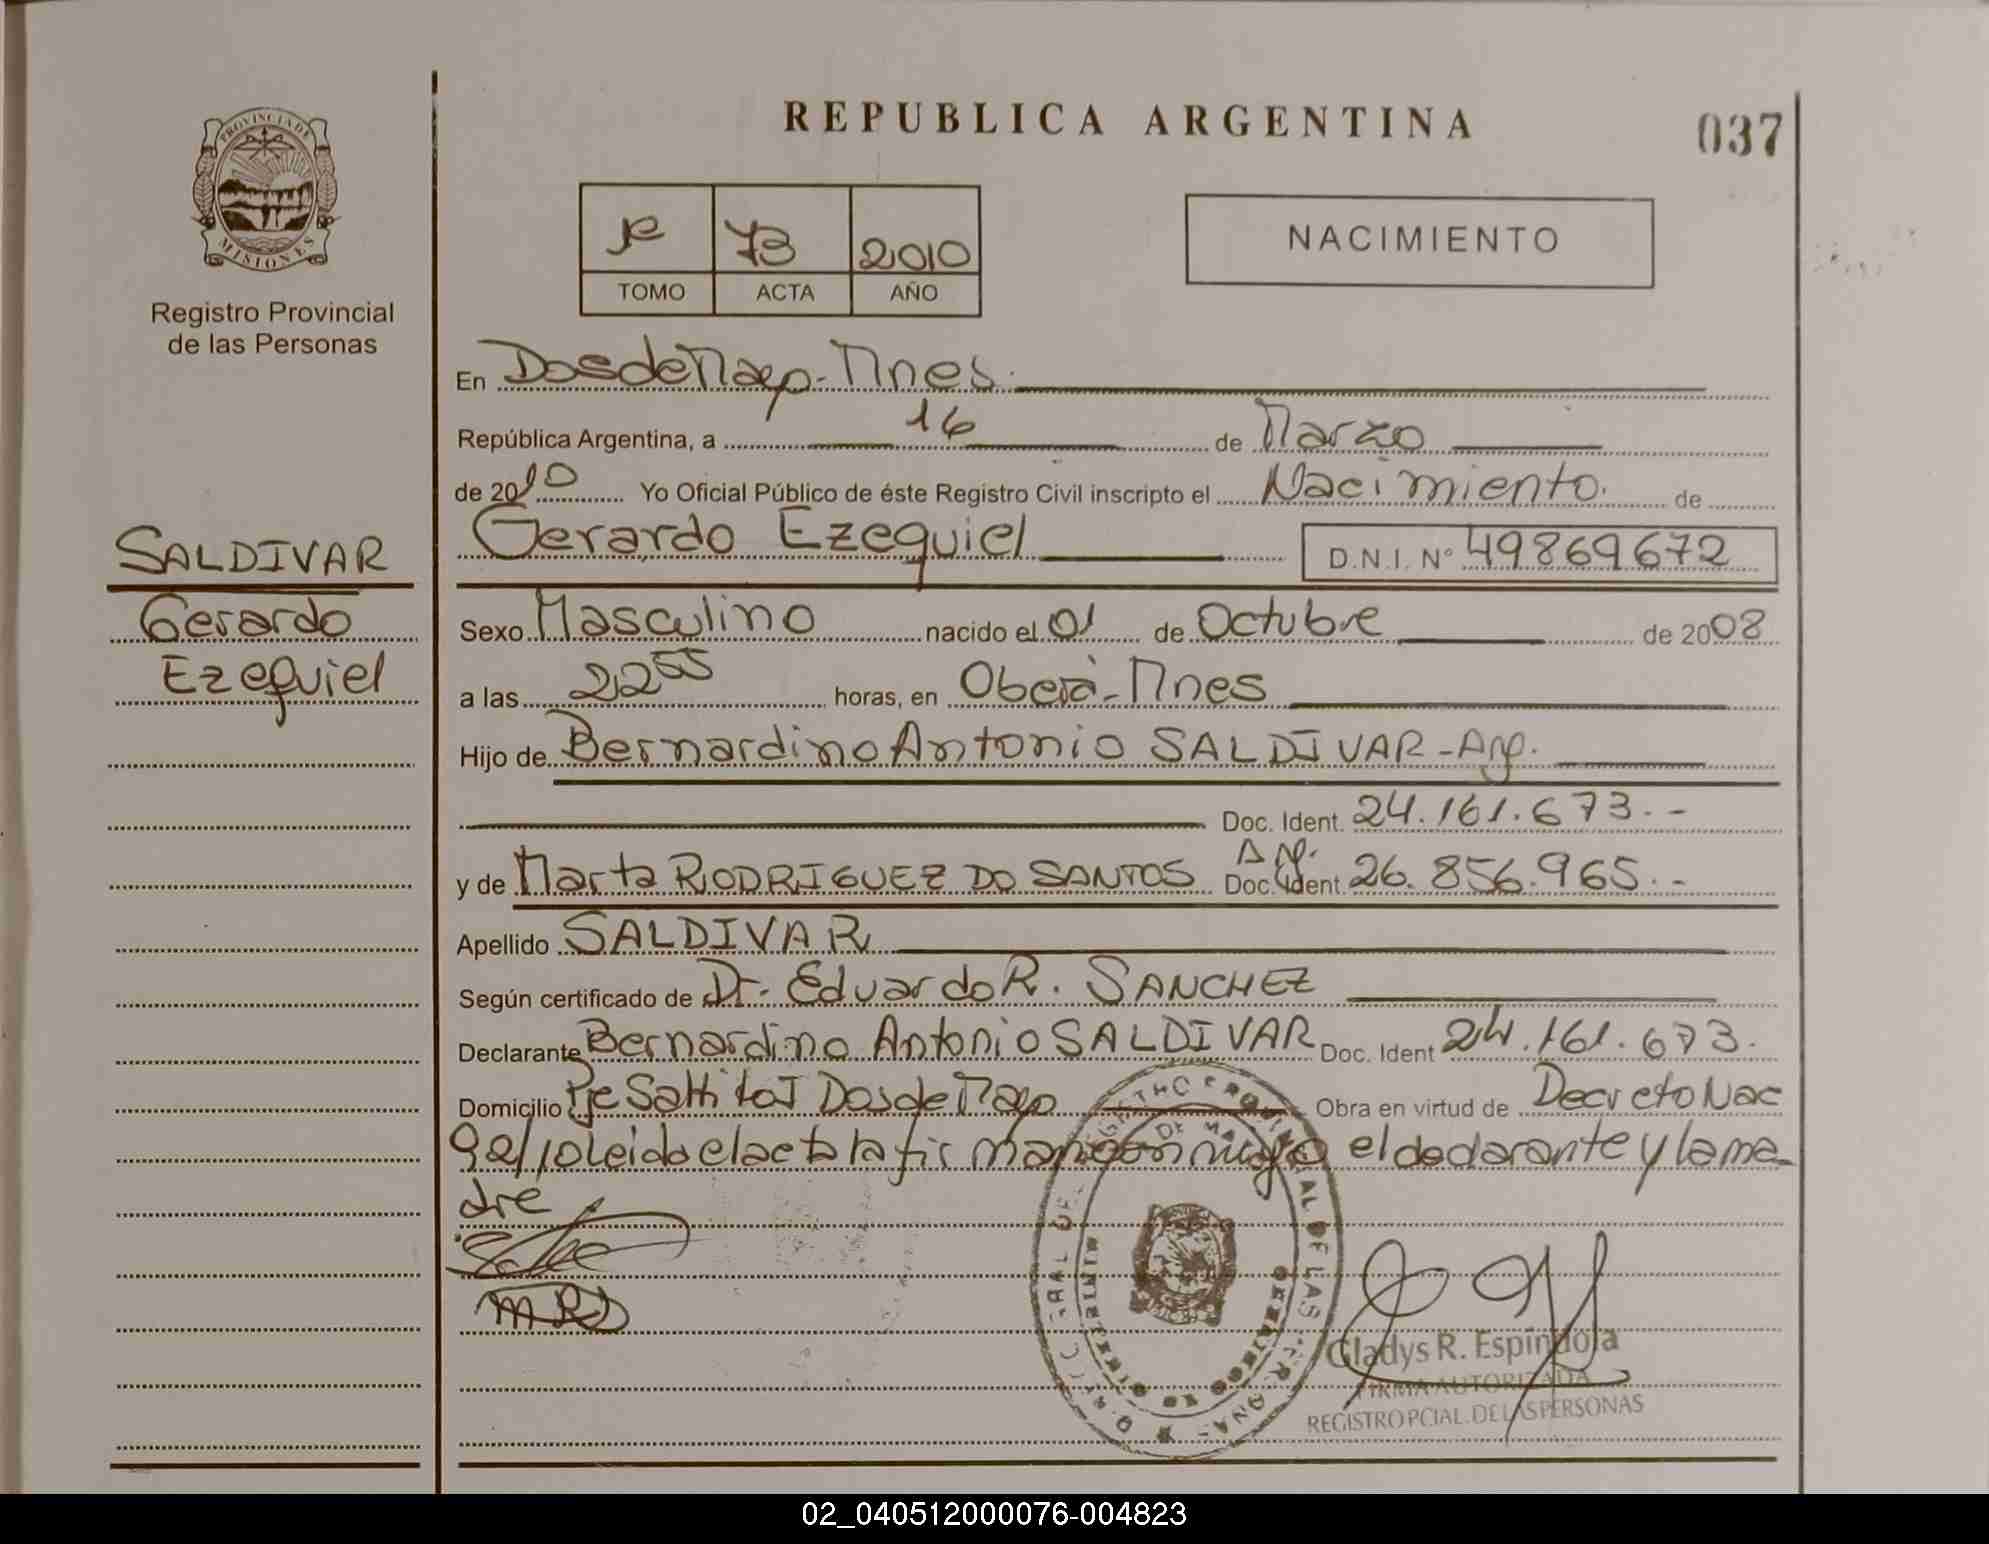 REPUBLICA ARGENTINA
037
PROVINCIA DE
MISIONES
Registro Provincial
de las Personas
73 2010
TOMO ACTA AÑO
NACIMIENTO
En Dos de Mayo - Mnes.
República Argentina, a 16 de Marzo
de 2010 Yo Oficial Público de éste Registro Civil inscripto el Nacimiento. de
Gerardo Ezequiel D.N.I. Nº 49869672
SALDIVAR
Gerardo
Ezequiel
Sexo Masculino nacido el 01 de Octubre de 2008
a las 22 55 horas, en Oberá - Mnes
Hijo de Bernardino Antonio SALDIVAR - Arg.
Doc. Ident. 24.161.673.-
y de Marta RODRIGUEZ DO SANTOS Arg. Doc. Ident. 26.856.965.-
Apellido SALDIVAR
Según certificado de Dr. Eduardo R. SANCHEZ
Declarante Bernardino Antonio SALDIVAR Doc. Ident 24.161.673.
Domicilio Pje Saltito I Dos de Mayo Obra en virtud de Decreto Nac
92/10 leida el acta la firman conmigo el declarante y la ma-
dre
MRD
Gladys R. Espíndola
FIRMA AUTORIZADA
REGISTRO PCIAL. DE LAS PERSONAS
02_040512000076-004823